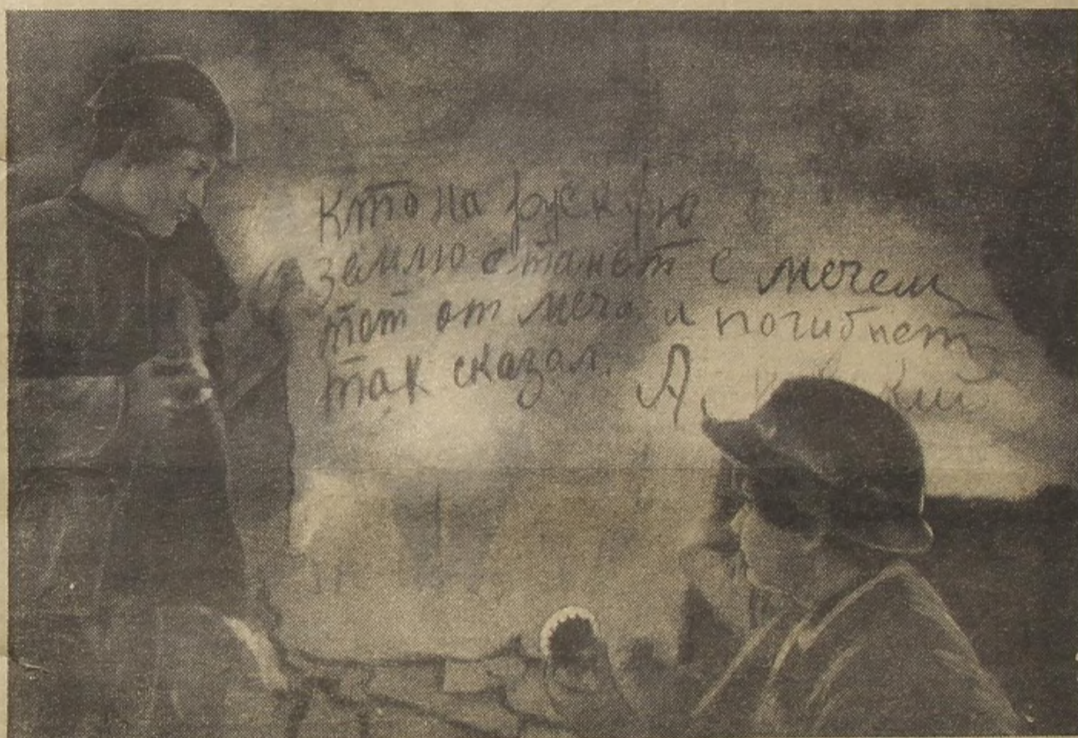 Кто на рускую
землю станет с мечем
тот от меча и погибнет
так сказал. А.